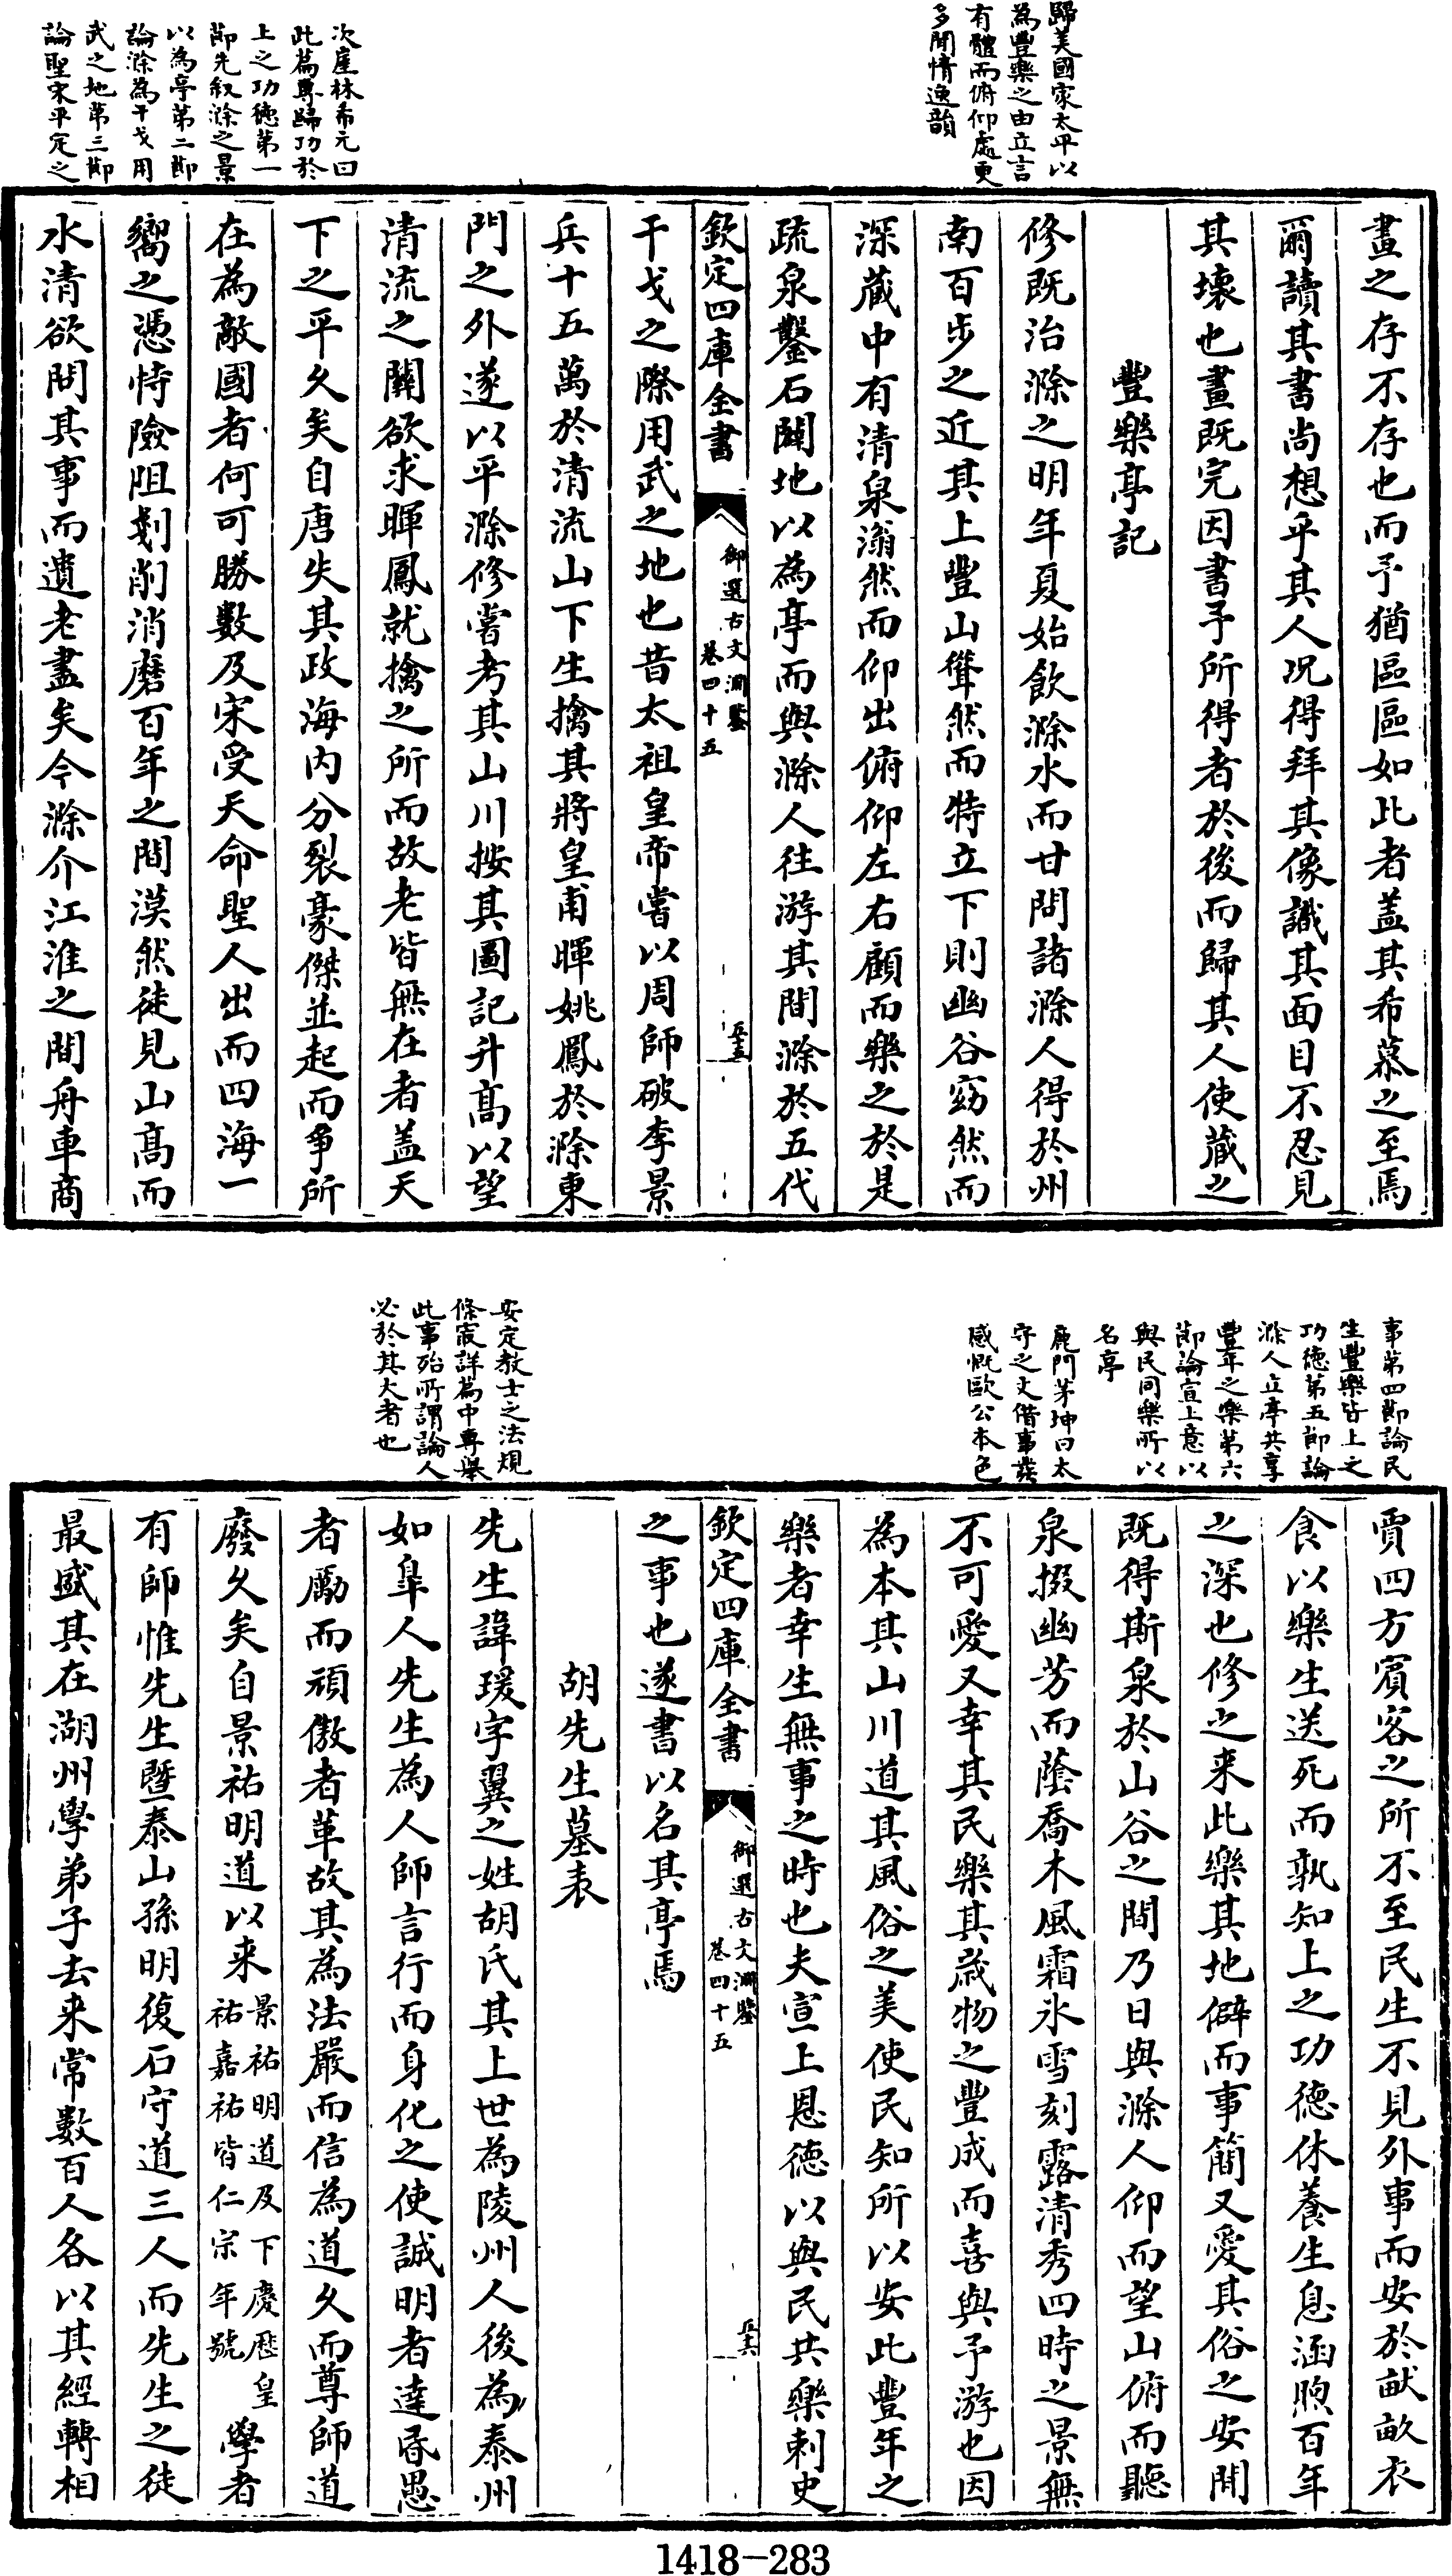 歸美國家太平以
為豐樂之由立言
有體而俯仰處更
多閒情逸韻
次崖林希元曰
此篇專歸功於
上之功德第一
節先叙滁之景
以為亭第二節
論滁為干戈用
武之地第三節
論聖宋平定之
畫之存不存也而予猶區區如此者盖其希慕之至焉
爾讀其書尚想乎其人况得拜其像識其面目不忍見
其壊也畫既完因書予所得者於後而歸其人使藏之
豐樂亭記
修既治滁之明年夏始飲滁水而甘問諸滁人得於州
南百步之近其上豐山聳然而特立下則幽谷窈然而
深藏中有清泉滃然而仰出俯仰左右顧而樂之於是
疏泉鑿石闢地以為亭而與滁人往游其間滁於五代
欽定四庫全書
御選古文淵鑒
卷四十五
五十五
干戈之際用武之地也昔太祖皇帝嘗以周師破李景
兵十五萬於清流山下生擒其將皇甫暉姚鳳於滁東
門之外遂以平滁修嘗考其山川按其圖記升髙以望
清流之關欲求暉鳳就擒之所而故老皆無在者盖天
下之平久矣自唐失其政海内分裂豪傑並起而爭所
在為敵國者何可勝數及宋受天命聖人出而四海一
嚮之憑恃險阻剗削消磨百年之間漠然徒見山髙而
水清欲問其事而遺老盡矣今滁介江淮之間舟車商
事第四節論民
生豐樂皆上之
功德第五節論
滁人立亭共享
豐年之樂第六
節論宣上意以
與民同樂所以
名亭
鹿門茅坤曰太
守之文借事發
感慨歐公本色
安定教士之法規
條㝡詳篇中專舉
此事殆所謂論人
必於其大者也
賈四方賓客之所不至民生不見外事而安於畎畝衣
食以樂生送死而孰知上之功德休養生息涵煦百年
之深也修之来此樂其地僻而事簡又愛其俗之安閒
既得斯泉於山谷之間乃日與滁人仰而望山俯而聽
泉掇幽芳而蔭喬木風霜氷雪刻露清秀四時之景無
不可愛又幸其民樂其歲物之豐成而喜與予游也因
為本其山川道其風俗之美使民知所以安此豐年之
樂者幸生無事之時也夫宣上恩德以與民共樂刺史
欽定四庫全書
御選古文淵鑒
卷四十五
五十六
之事也遂書以名其亭焉
胡先生墓表
先生諱瑗字翼之姓胡氏其上世為陵州人後為泰州
如臯人先生為人師言行而身化之使誠明者達昏愚
者勵而頑傲者革故其為法嚴而信為道久而尊師道
廢久矣自景祐明道以来景祐明道及下慶厯皇祐嘉祐皆仁宗年號學者
有師惟先生暨泰山孫明復石守道三人而先生之徒
最盛其在湖州學弟子去来常數百人各以其經轉相
1418-283